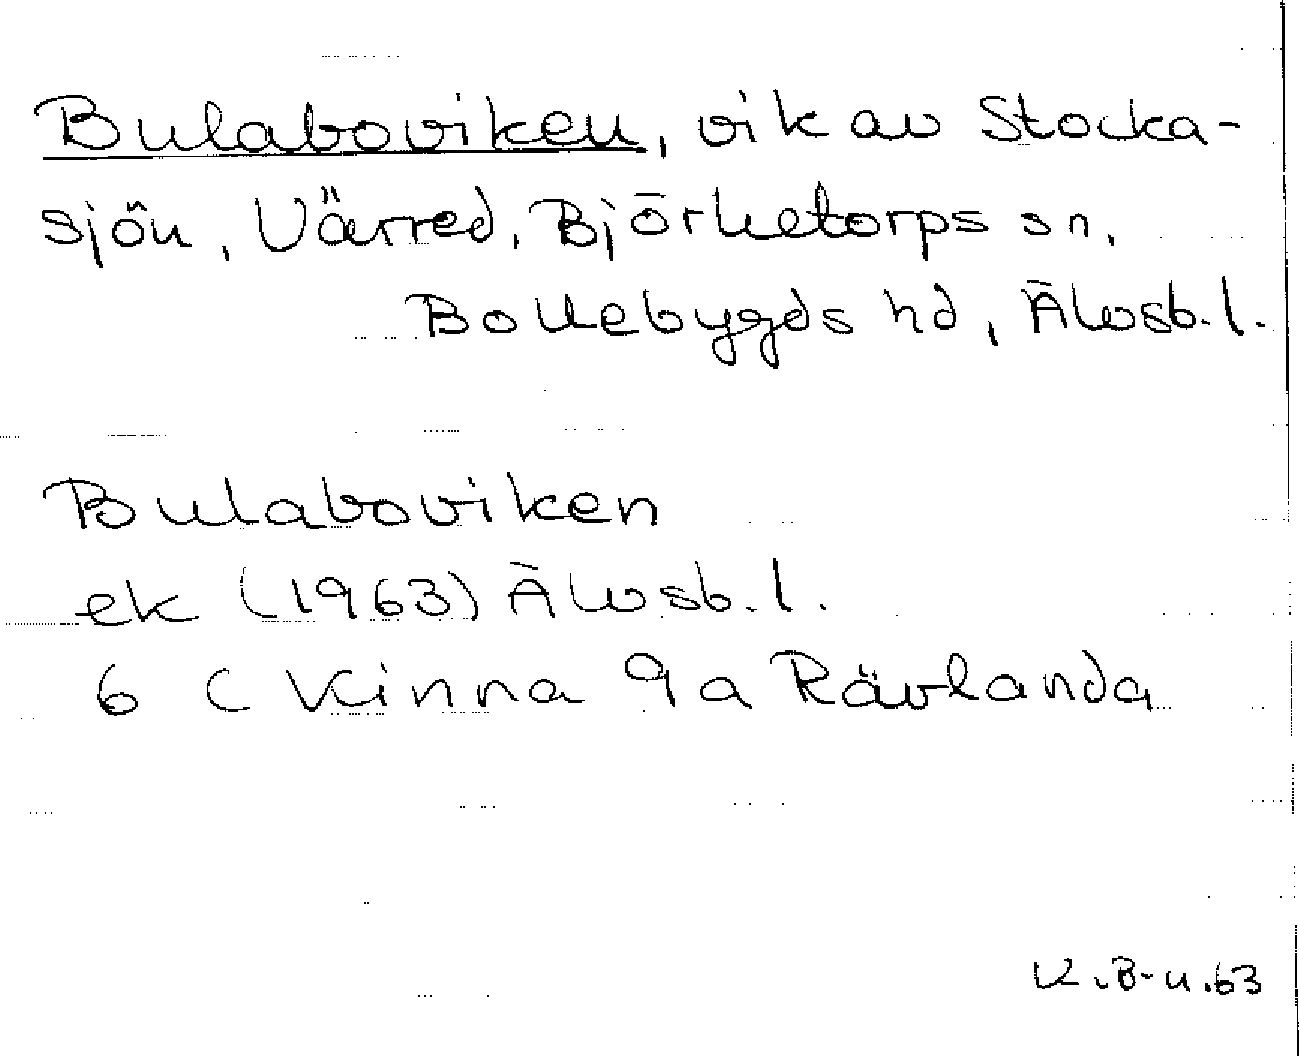 Bulaboviken, vik av Stocka-
sjön, Värred, Björketorps sn,
Bollebygds hd, Älvsb. l.
Bulaboviken
ek (1963) Älvsb. l.
6 C Kinna 9a Rävlanda
K.B-n.63